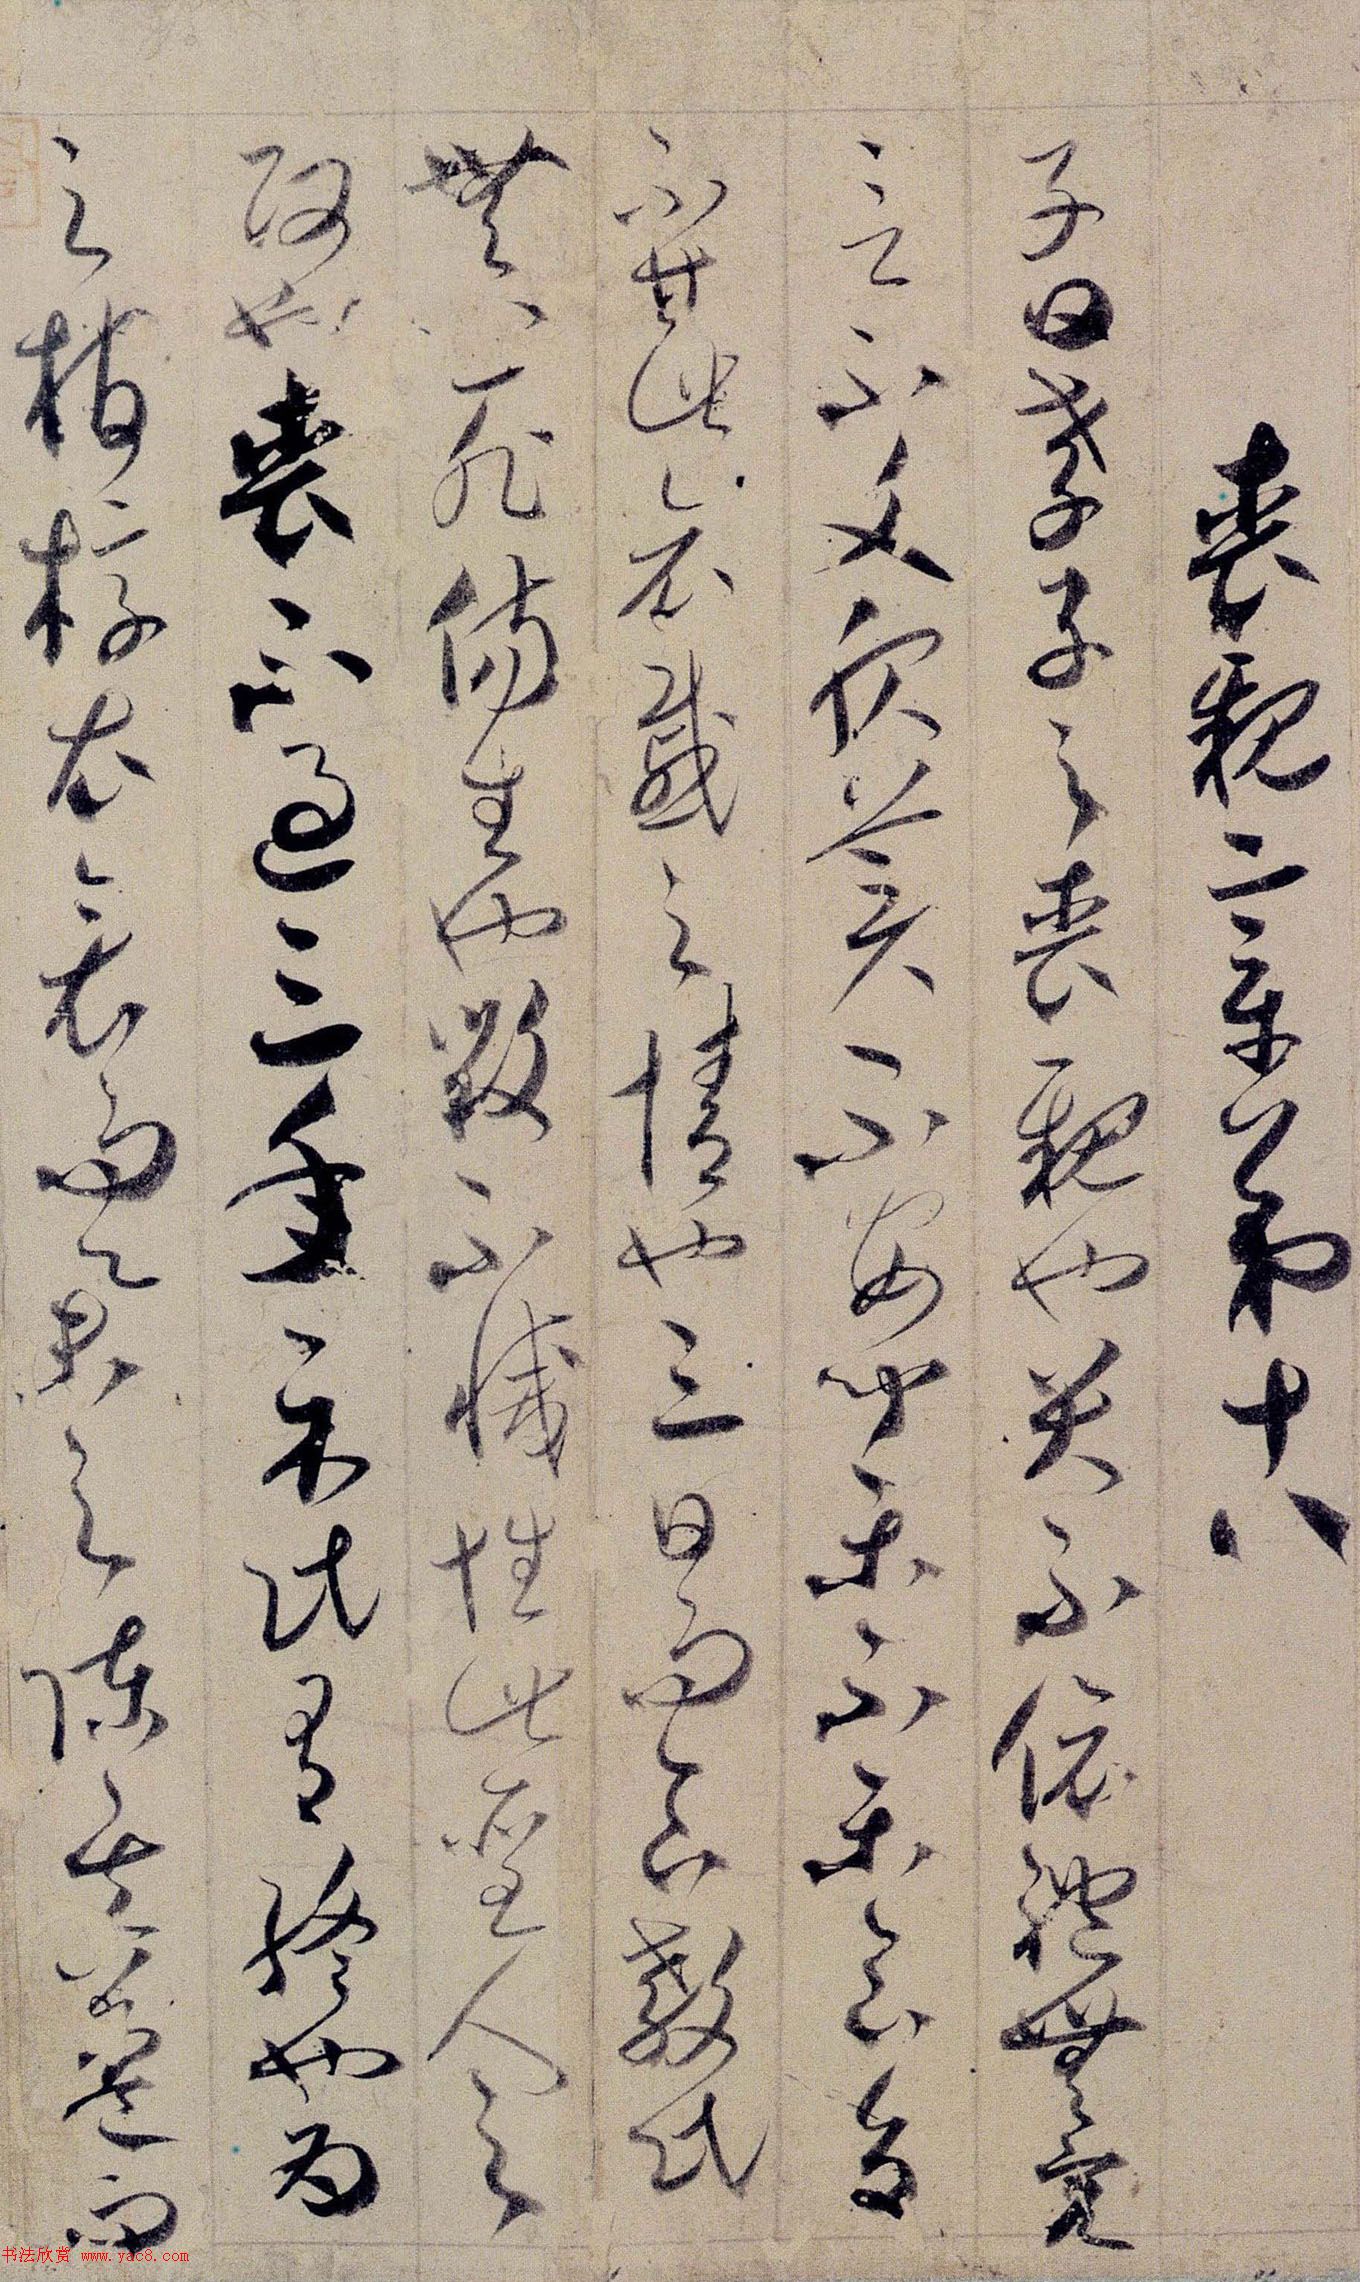 喪親章第十八
子曰孝子之喪親也哭不偯禮無容
言不文服美不安聞樂不樂食旨
不甘此哀慼之情也三日而食教民
無以死傷生也毀不滅性此聖人之
政也喪不過三年示民有終也為
之棺椁衣衾而舉之陳其簠簋而
书法欣赏 www.yac8.com